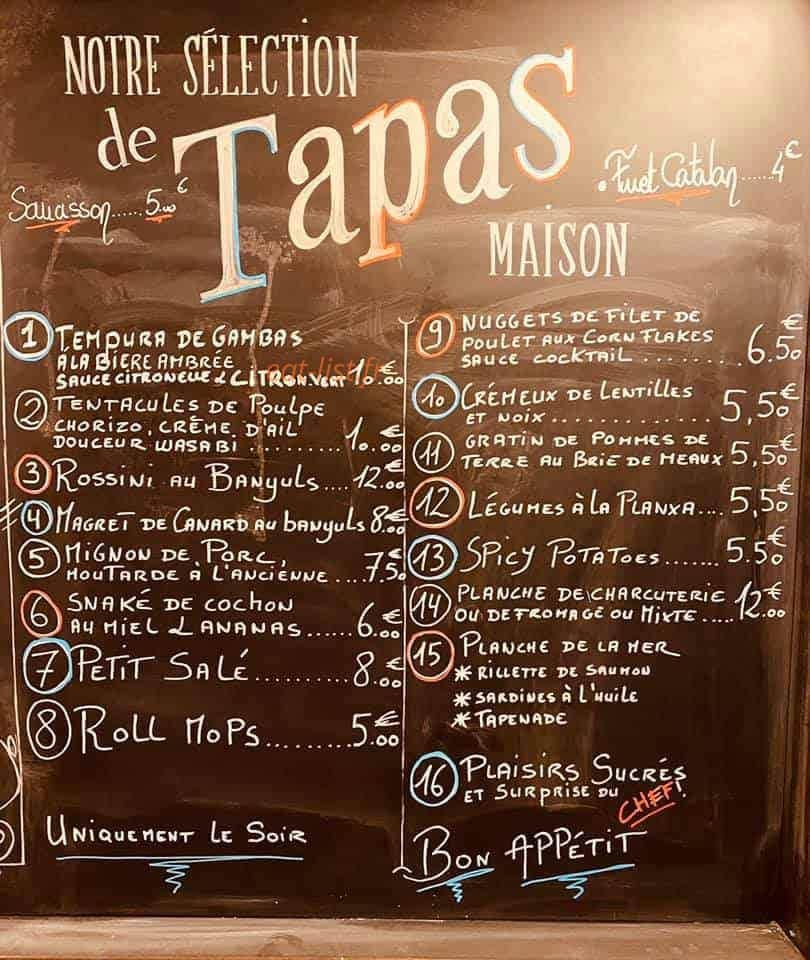 NOTRE SÉLECTION
de Tapas
Saucisson......5.00€
.Fuet Catalan......4€
MAISON
1 TEMPURA DE GAMBAS
A LA BIERE AMBRÉE
SAUCE CITRONELLE & CITRON VERT 10.00€
2 TENTACULES DE POULPE
CHORIZO, CRÊME D'AIL
DOUCEUR WASABI ......... 10.00€
3 ROSSINI AU BANYULS.... 12.00€
4 MAGRET DE CANARD AU BANYULS 8.00€
5 MIGNON DE PORC,
MOUTARDE À L'ANCIENNE ....7.50€
6 SNAKÉ DE COCHON
AU MIEL & ANANAS...... 6.00€
7 PETIT SALÉ........ 8.00€
8 ROLL MOPS......... 5.00€
UNIQUEMENT LE SOIR
9 NUGGETS DE FILET DE
POULET AUX CORN FLAKES
SAUCE COCKTAIL ........ 6.50€
10 CRÉMEUX DE LENTILLES
ET NOIX.............. 5,50€
11 GRATIN DE POMMES DE
TERRE AU BRIE DE MEAUX 5,50€
12 LÉGUMES À LA PLANXA.... 5,50€
13 SPICY POTATOES....... 5.50€
14 PLANCHE DE CHARCUTERIE
OU DE FROMAGE OU MIXTE ..... 12.00€
15 PLANCHE DE LA MER
* RILLETTE DE SAUMON
* SARDINES À L'HUILE
* TAPENADE
16 PLAISIRS SUCRÉS
ET SURPRISE DU CHEF!
BON APPÉTIT
eat-list.fr